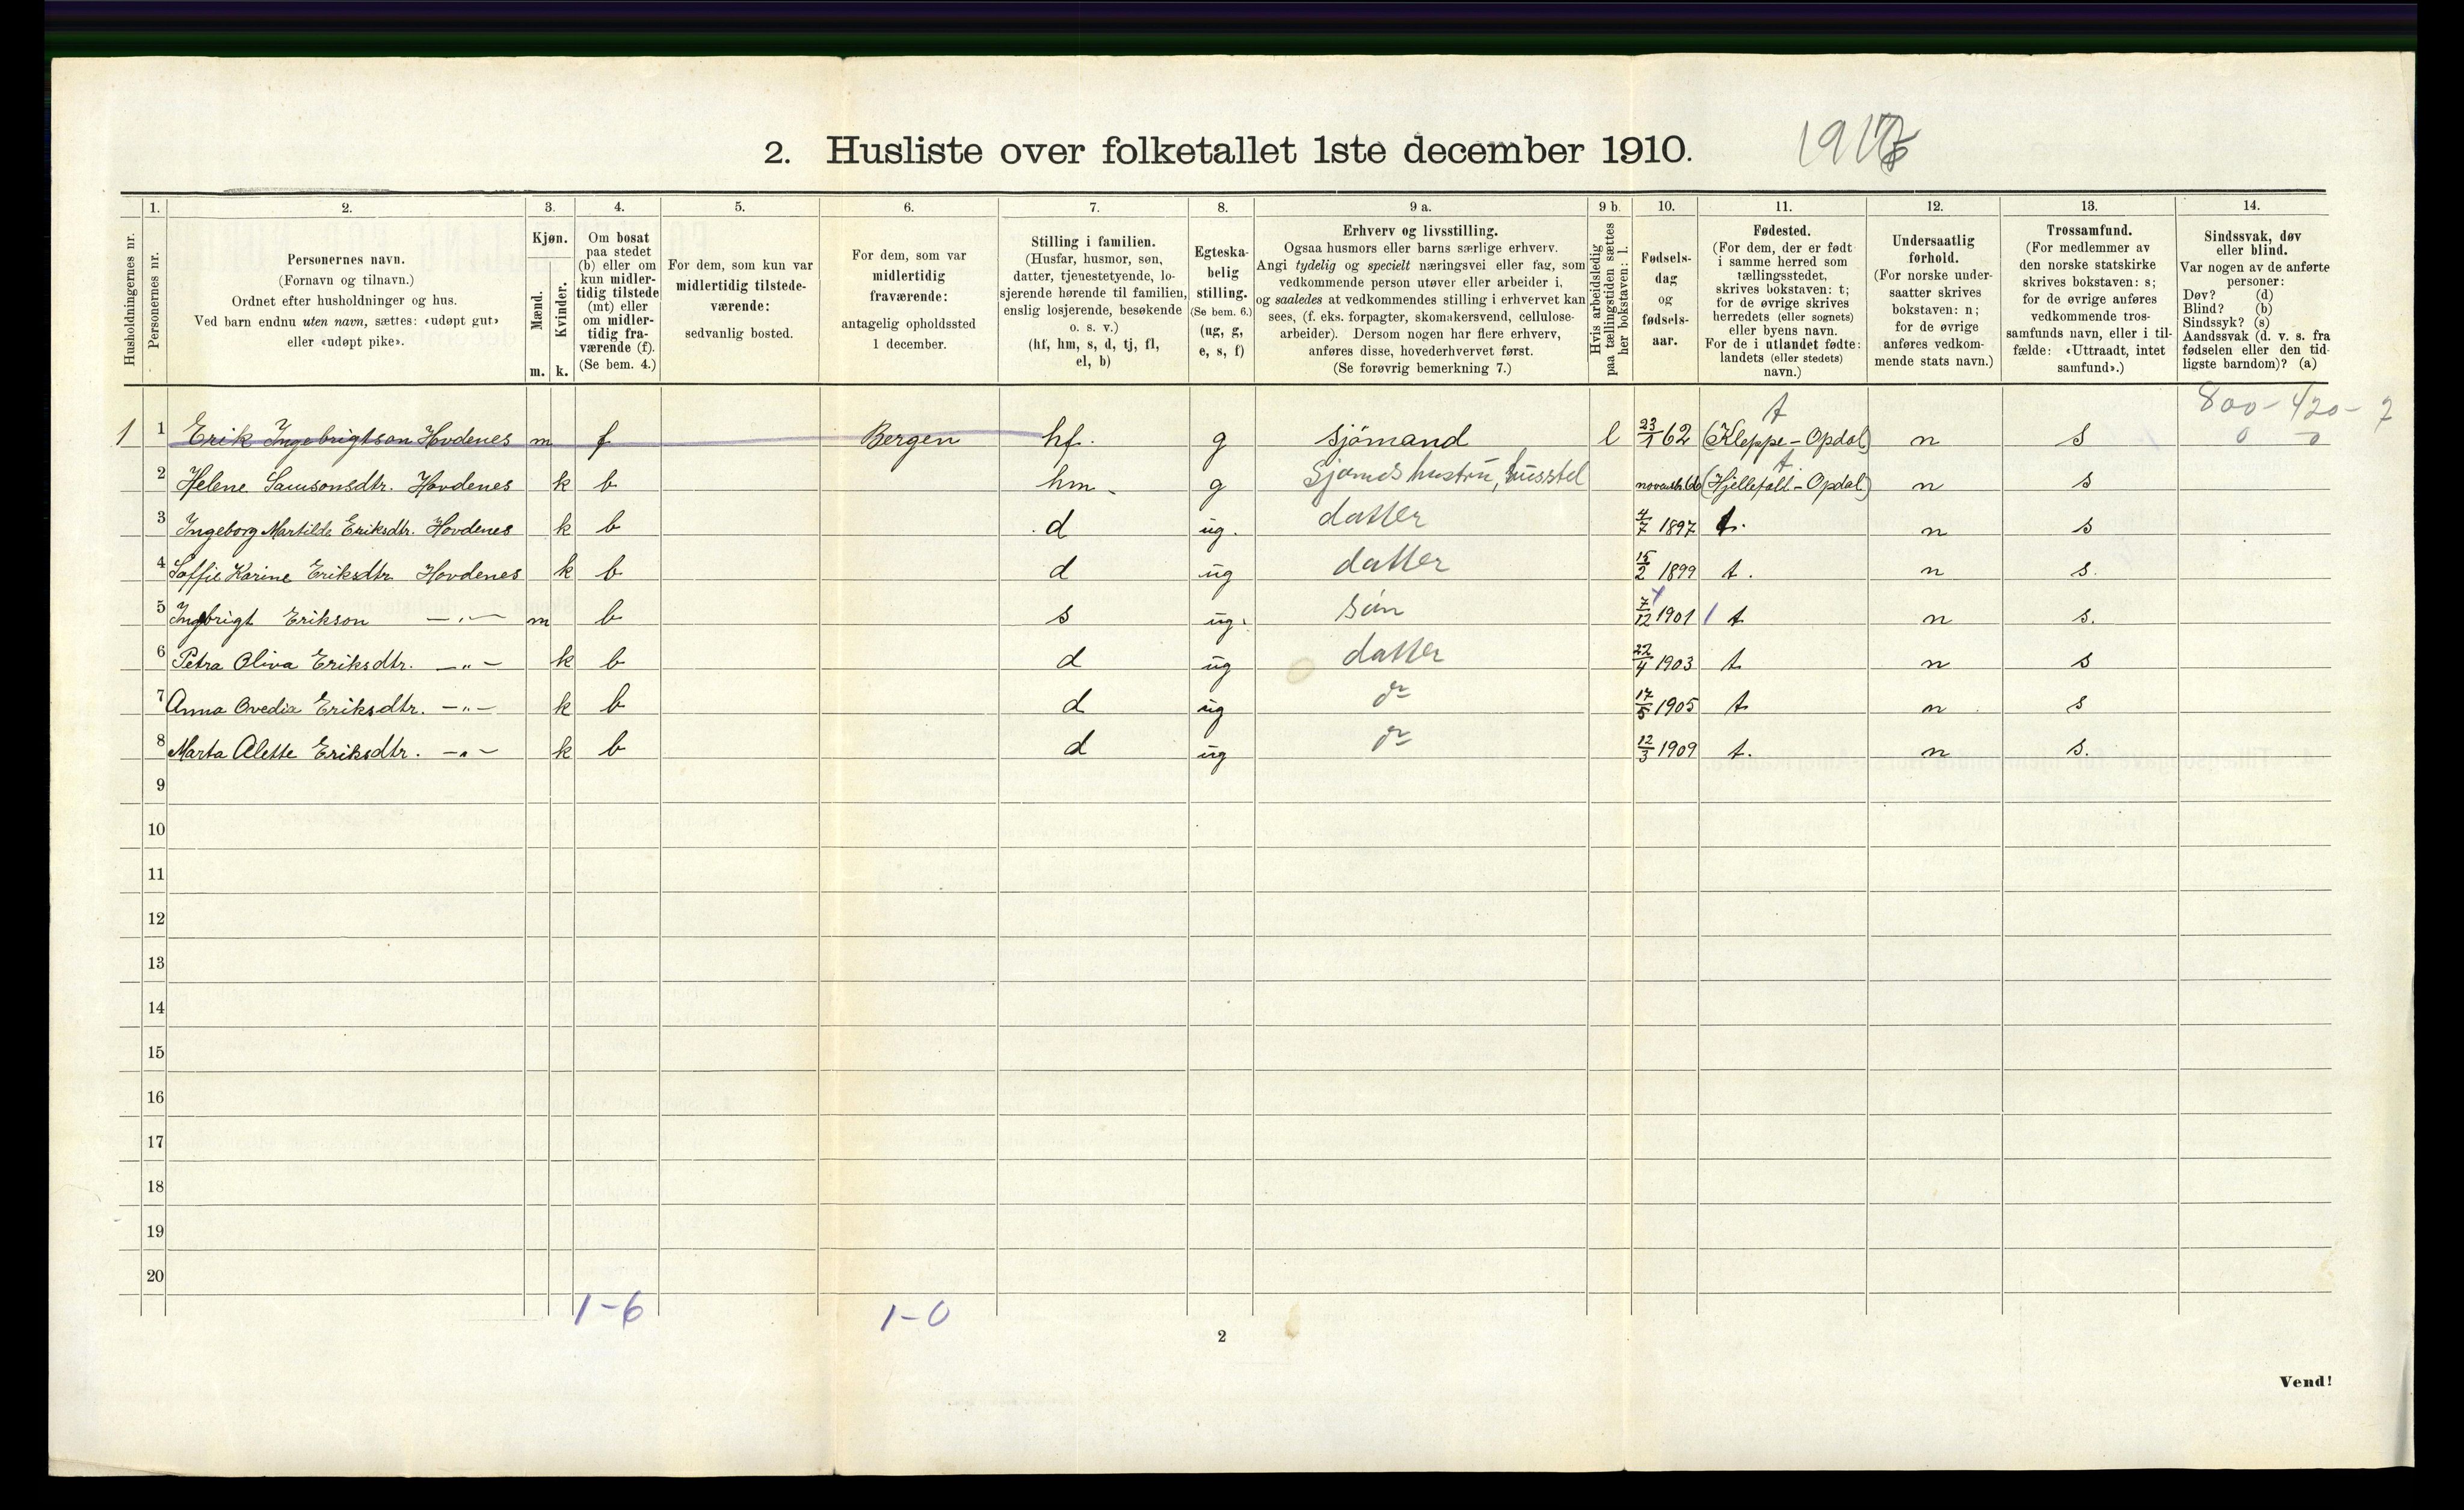 2. Husliste over folketallet 1ste december 1910.
Husholdningernes nr.
1.
Personernes nr.
2.
Personernes navn.
(Fornavn og tilnavn.)
Ordnet efter husholdninger og hus.
Ved barn endnu uten navn, sættes: «udøpt gut»
eller «udøpt pike».
3.
Kjøn.
Mænd.
Kvinder.
m. k.
4.
Om bosat
paa stedet
(b) eller om
kun midler-
tidig tilstede
(mt) eller
om midler-
tidig fra-
værende (f).
(Se bem. 4.)
5.
For dem, som kun var
midlertidig tilstede-
værende:
sedvanlig bosted.
6.
For dem, som var
midlertidig
fraværende:
antagelig opholdssted
1 december.
7.
Stilling i familien.
(Husfar, husmor, søn,
datter, tjenestetyende, lo-
sjerende hørende til familien,
enslig losjerende, besøkende
o. s. v.)
(hf, hm, s, d, tj, fl,
el, b)
8.
Egteska-
belig
stilling.
(Se bem. 6.)
(ug, g,
e, s, f)
9 a.
Erhverv og livsstilling.
Ogsaa husmors eller barns særlige erhverv.
Angi tydelig og specielt næringsvei eller fag, som
vedkommende person utøver eller arbeider i,
og saaledes at vedkommendes stilling i erhvervet kan
sees, (f. eks. forpagter, skomakersvend, cellulose-
arbeider). Dersom nogen har flere erhverv,
anføres disse, hovederhvervet først.
(Se forøvrig bemerkning 7.)
9 b.
Hvis arbeidsledig
paa tællingstiden sættes
her bokstaven: l.
10.
Fødsels-
dag
og
fødsels-
aar.
11.
Fødested.
(For dem, der er født
i samme herred som
tællingsstedet,
skrives bokstaven: t;
for de øvrige skrives
herredets (eller sognets)
eller byens navn.
For de i utlandet fødte:
landets (eller stedets)
navn.)
12.
Undersaatlig
forhold.
(For norske under-
saatter skrives
bokstaven: n;
for de øvrige
anføres vedkom-
mende stats navn.)
13.
Trossamfund.
(For medlemmer av
den norske statskirke
skrives bokstaven: s;
for de øvrige anføres
vedkommende tros-
samfunds navn, eller i til-
fælde: «Uttraadt, intet
samfund».)
14.
Sindssvak, døv
eller blind.
Var nogen av de anførte
personer:
Døv? (d)
Blind? (b)
Sindssyk? (s)
Aandssvak (d. v. s. fra
fødselen eller den tid-
ligste barndom)? (a)
800-420-2
t
1 1 Erik Ingebrigtson Hovdenes m f Bergen hf. g sjömand l 23/1 62 (Kleppe-Opdal) n s 0 0
t
2 Helene Samsonsdtr. Hovdenes k b hm. g Sjømds hustru, husstel (Hjellefall-Opdal) n s
3 Ingeborg Martilde Eriksdtr. Hovdenes k b d ug. datter 4/7 1897 t. n s
4 Soffie Karine Eriksdtr Hovdenes k b d ug datter 15/2 1899 t. n s.
5 Ingebrigt Erikson -"- m b s ug. søn 7/12 1901 t n s.
6 Petra Oliva Eriksdtr. -"- k b d ug datter 22/4 1903 t n s
7 Anna Ovedia Eriksdtr. -"- k b d ug do 17/5 1905 t n s
8 Marta Alette Eriksdtr. -"- k b d ug do 12/3 1909 t. n s.
9
10
11
12
13
14
15
16
17
18
19
20
1-6 1-0
2
Vend!